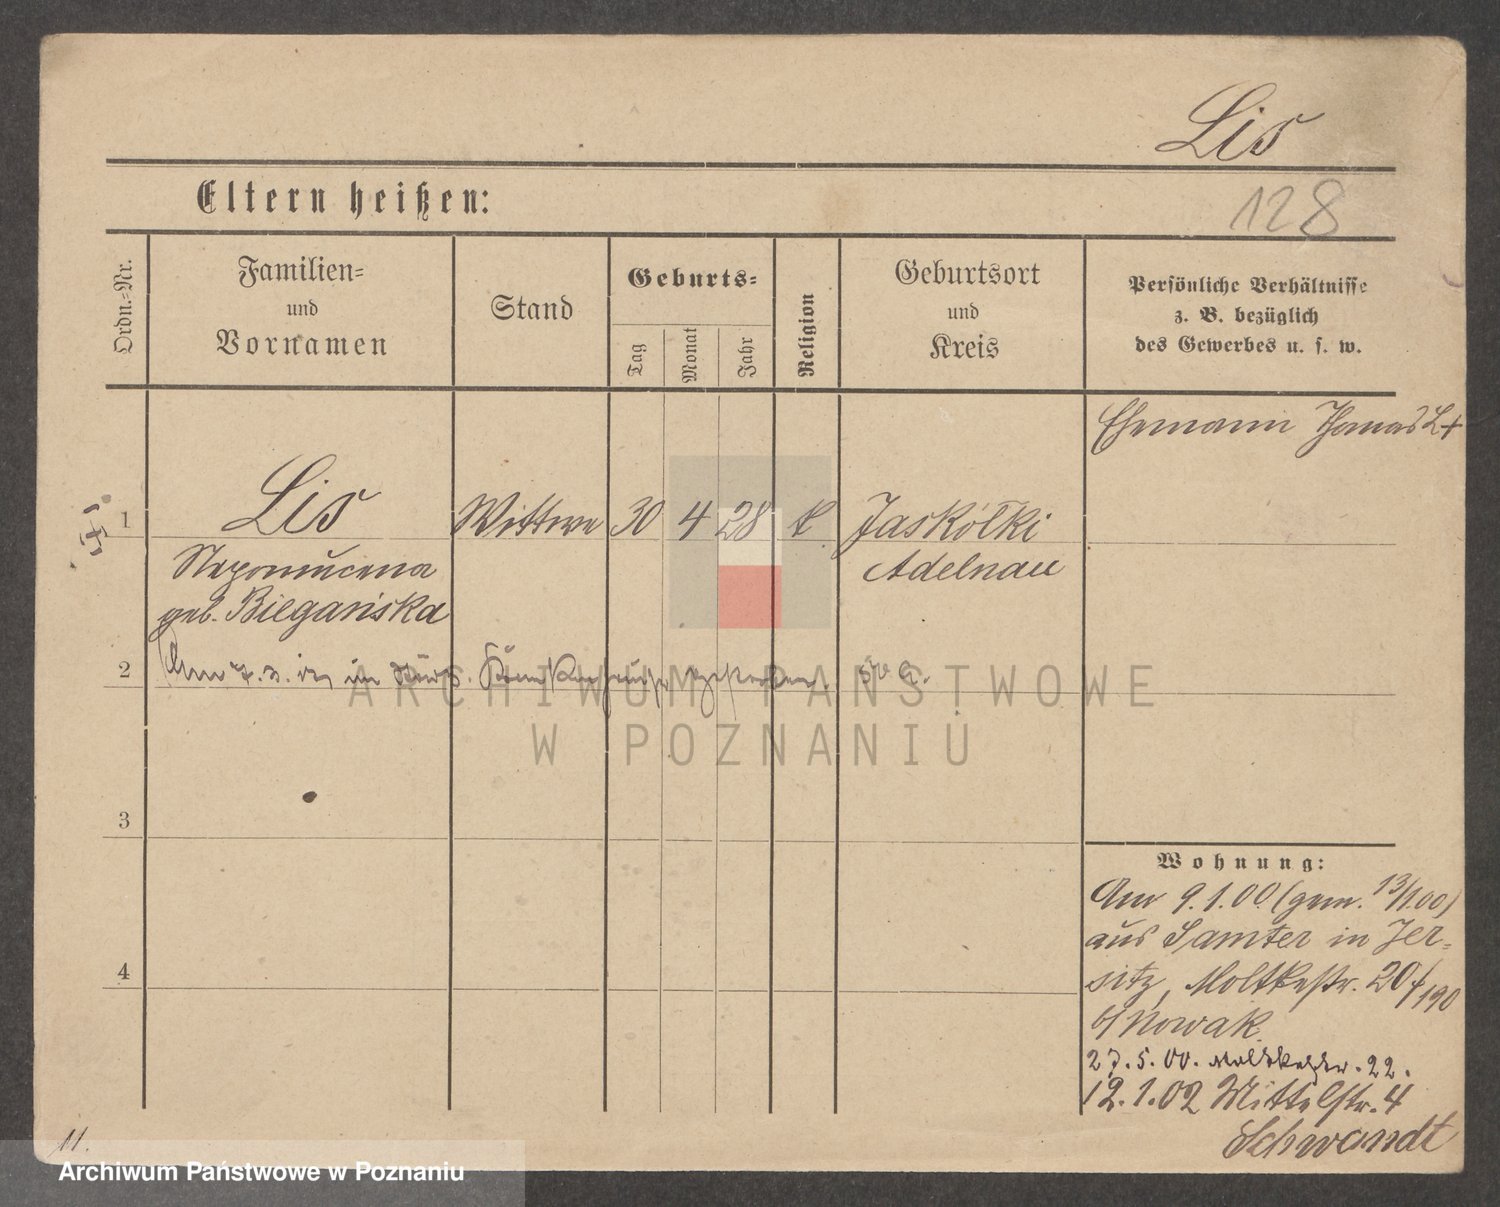 Lis
Eltern heißen:
128
Ordn.=Nr.
Familien=
und
Vornamen
Stand
Geburts=
Tag
Monat
Jahr
Religion
Geburtsort
und
Kreis
Persönliche Verhältnisse
z. B. bezüglich
des Gewerbes u. s. w.
Ehemann Thomas L +
1
Lis
Wittwe
30
4
28
k
Jaskólki
Nepomucena
Adelnau
geb. Biegańska
2
Am 7. 3. im Krankenhause gestorben.
ARCHIWUM PAŃSTWOWE
W POZNANIU
3
Wohnung:
Am 9.1.00 (gem. 13/1.00)
aus Samter in Jer-
sitz, Moltkestr. 20/
190
b/ Nowak
4
27.5.00. Moltkestr. 22.
12.1.02 Mittelstr. 4
Schwandt
11.
Archiwum Państwowe w Poznaniu